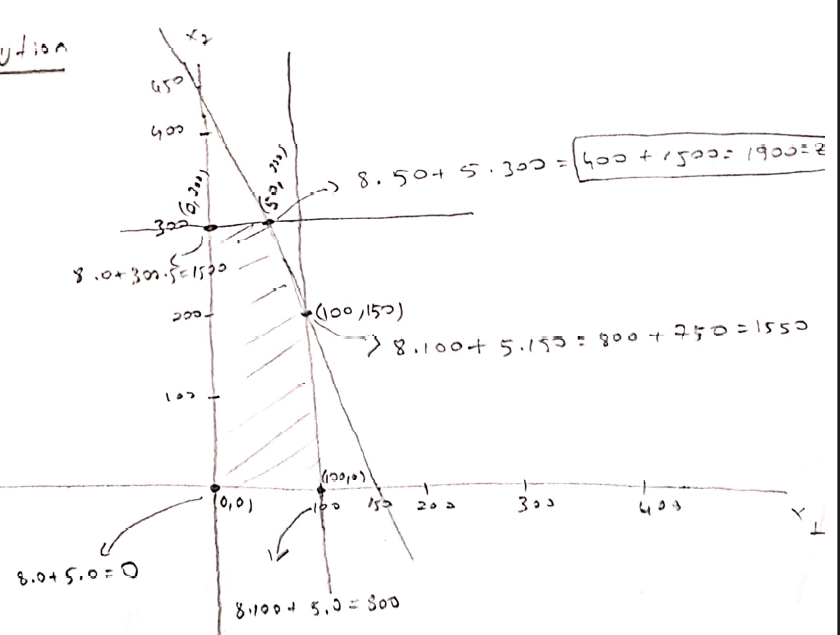 ution
x2
450
400
(0,300)
(50,300)
8.50+ 5.300 = 400 + 1500= 1900=z
300
8.0+300.5=1500
200
(100,150)
8.100+ 5.150= 800 + 750 = 1550
100
(100,0)
(0,0)
100
150
200
300
400
x1
8.0+5.0=0
8.100+ 5.0= 800